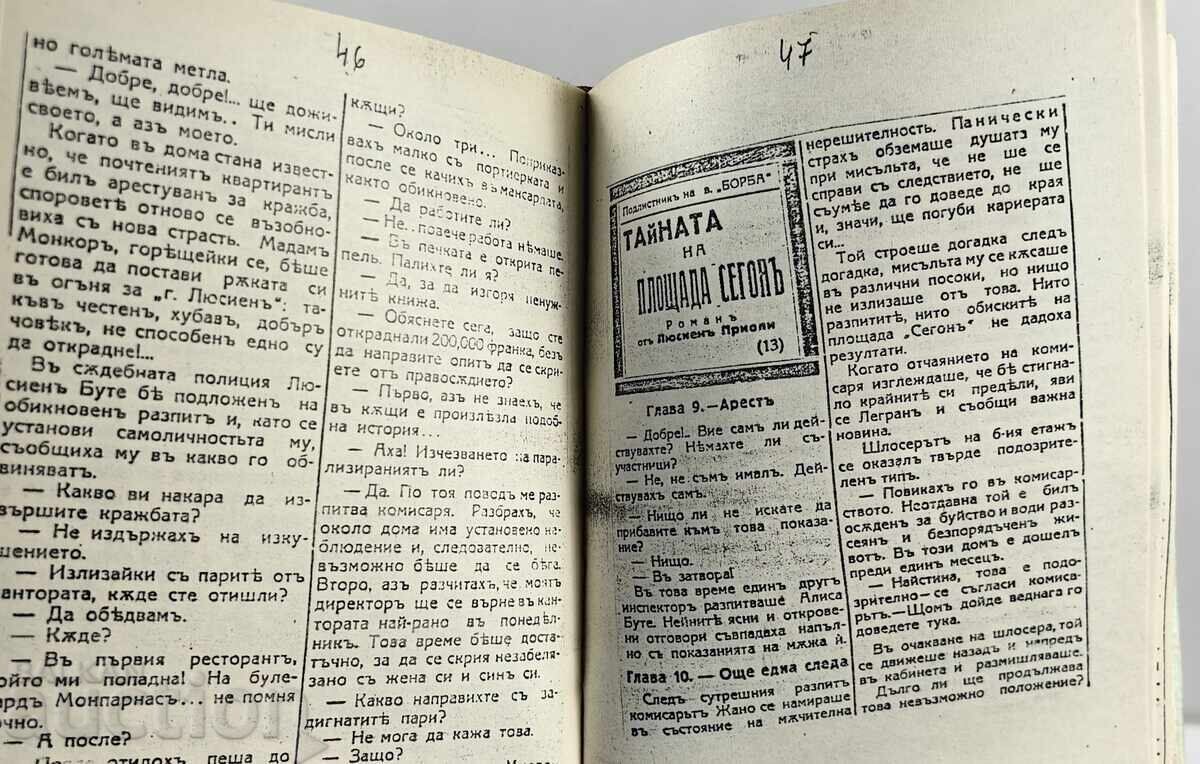 46
но голѣмата метла.
— Добре, добре!... ще дожи-
вѣемъ, ще видимъ.. Ти мисли
своето, а азъ моето.
Когато въ дома стана извест-
но, че почтениятъ квартирантъ
е билъ арестуванъ за кражба,
споровetѣ отново се възобно-
виха съ нова страсть. Мадамъ
Монкоръ, горѣщейки се, бѣше
готова да постави рѫката си
въ огъня за „г. Люсиенъ": та-
къвъ честенъ, хубавъ, добъръ
човѣкъ, не способенъ едно су
да открадне!...
Въ сѫдебната полиция Лю-
сиенъ Буте бѣ подложенъ на
обикновенъ разпитъ и, като се
установи самоличностьта му,
съобщиха му въ какво го об-
виняватъ.
— Какво ви накара да из-
вършите кражбата?
— Не издържахъ на изку-
шението.
— Излизайки съ паритѣ отъ
кантората, кѫде сте отишли?
— Да обѣдвамъ.
— Кѫде?
— Въ първия ресторантъ,
който ми попадна! На буле-
вардъ Монпарнасъ... не помня
точно.
— А после?
отидохъ пеша до
кѫщи?
— Около три... Поприказ-
вахъ малко съ портиерката и
после се качихъ въ мансардата,
както обикновено.
— Да работите ли?
— Не.. повече работа нѣмаше.
— Въ печката е открита пе-
пель. Палихте ли я?
— Да, за да изгоря ненуж-
нитѣ книжа.
— Обяснете сега, защо сте
откраднали 200,000 франка, безъ
да направите опитъ да се скри-
ете отъ правосѫдието?
— Първо, азъ не знаехъ, че
въ кѫщи е произлѣзла подоб-
на история...
— Аха! Изчезването на пара-
лизираниятъ ли?
— Да. По тоя поводъ ме раз-
питва комисаря. Разбрахъ, че
около дома има установено на-
блюдение и, следователно, не-
възможно бѣше да се бѣга.
Второ, азъ разчитахъ, че моятъ
директоръ ще се върне въ кан-
тората най-рано въ понедѣл-
никъ. Това време бѣше доста-
тъчно, за да се скрия незабеля-
зано съ жена си и синъ си.
— Какво направихте съ за-
дигнатитѣ пари?
— Не мога да кажа това.
— Защо?
47
Подлистникъ на в. „БОРБА"
ТАЙНАТА
НА
ПЛОЩАДА СЕГОНЪ
Романъ
отъ Люсиенъ Приоли
(13)
Глава 9.—Арестъ
— Добре!.. Вие самъ ли дей-
ствувахте? Нѣмахте ли съ-
участници?
— Не, не съмъ ималъ. Дей-
ствувахъ самъ.
— Нищо ли не искате да
прибавите къмъ това показа-
ние?
— Нищо.
— Въ затвора!
Въ това време единъ другъ
инспекторъ разпитваше Алиса
Буте. Нейнитѣ ясни и открове-
ни отговори съвпадаха напъл-
но съ показанията на мѫжа ѝ.
Глава 10. — Още една следа
Следъ сутрешния разпитъ
комисарътъ Жано се намираше
въ състояние на мѫчителна
нерешителность. Панически
страхъ обземаше душата му
при мисъльта, че не ще се
справи съ следствието, не ще
съумѣе да го доведе до края
и, значи, ще погуби кариерата
си...
Той строеше догадка следъ
догадка, мисъльта му се кѫсаше
въ различни посоки, но нищо
не излизаше отъ това. Нито
разпититѣ, нито обискитѣ на
площада „Сегонъ" не дадоха
резултати.
Когато отчаянието на коми-
саря изглеждаше, че бѣ стигна-
ло крайнитѣ си предѣли, яви
се Легранъ и съобщи важна
новина.
Шлосерътъ на 6-ия етажъ
се оказалъ твърде подозрите-
ленъ типъ.
— Повикахъ го въ комисар-
ството. Неотдавна той е билъ
осѫденъ за буйство и води раз-
сеянъ и безпорядъченъ жи-
вотъ. Въ този домъ е дошелъ
преди единъ месецъ.
— Наистина, това е подо-
зрително—се съгласи комиса-
рътъ.—Щомъ дойде веднага го
доведете тука.
Въ очакване на шлосера, той
се движеше назадъ и напредъ
въ кабинета и размишляваше.
Дълго ли ще продължава
това невъзможно положение?